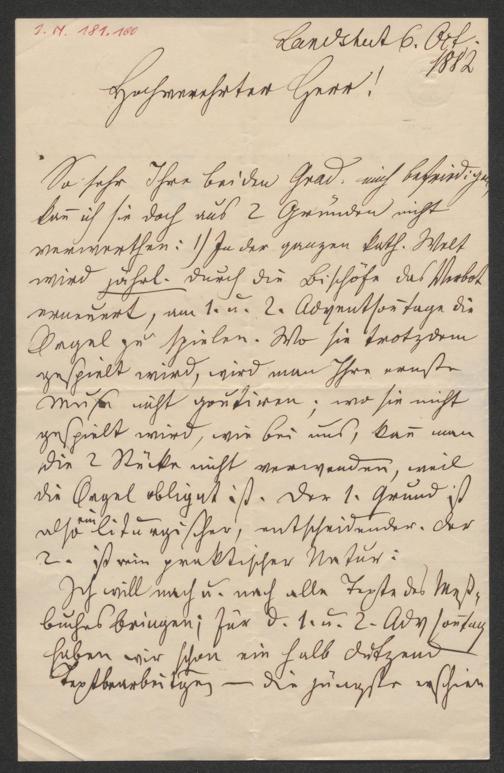 I. N. 181.100
Landshut 6. Oct.
1882
Hochverehrter Herr!
So sehr Ihre beiden Grad. mich befriedigen,
kan̄ ich sie doch aus 2 Gründen nicht
verwerthen: 1) In der ganzen kath. Welt
wird jährl. durch die Bischöfe das Verbot
erneuert, am 1. u. 2. Adventson̄tage die
Orgel zu spielen. Wo sie trotzdem
gespielt wird, wird man Ihre ernste
Musik nicht goutiren; wo sie nicht
gespielt wird, wie bei uns, kan̄ man
die 2 Stücke nicht verwenden, weil
die Orgel obligat ist. Der 1. Grund ist
also ein liturgischer, entscheidender. Der
2. ist rein praktischer Natur:
Ich will nach u. nach alle Texte des Meß-
buches bringen; für d. 1. u. 2. Adv son̄tag
haben wir schon ein halb Dutzend
Textbearbeitgen — die jüngste erschien